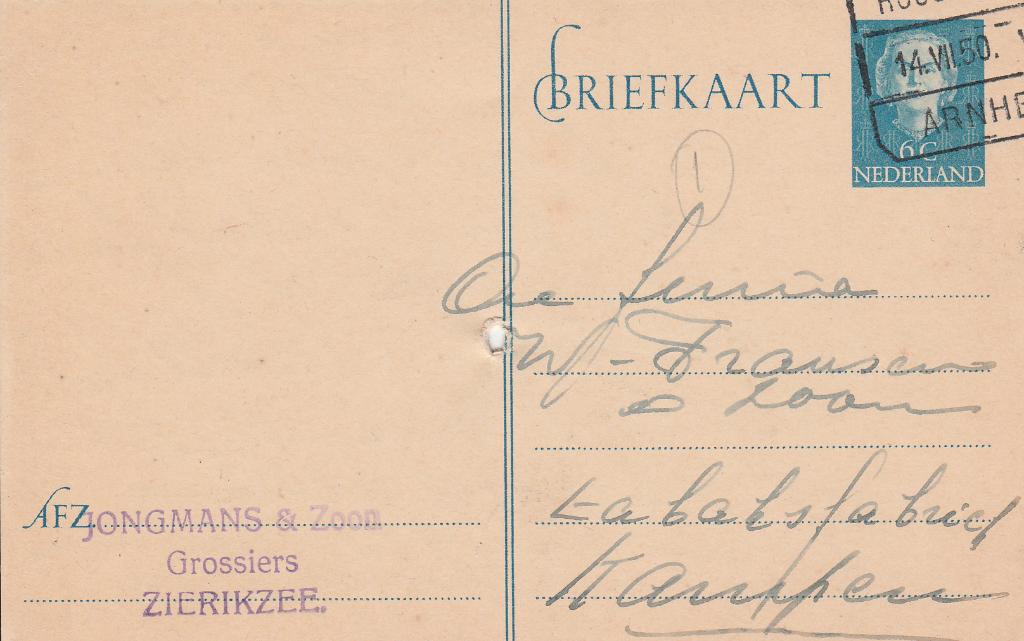 BRIEFKAART
14.VII.50.
ARNHE
6 C
NEDERLAND
1
De Firma
W. Fransen
e Zoon
Tabaksfabriek
Kampen
AFZ.
JONGMANS & Zoon
Grossiers
ZIERIKZEE.